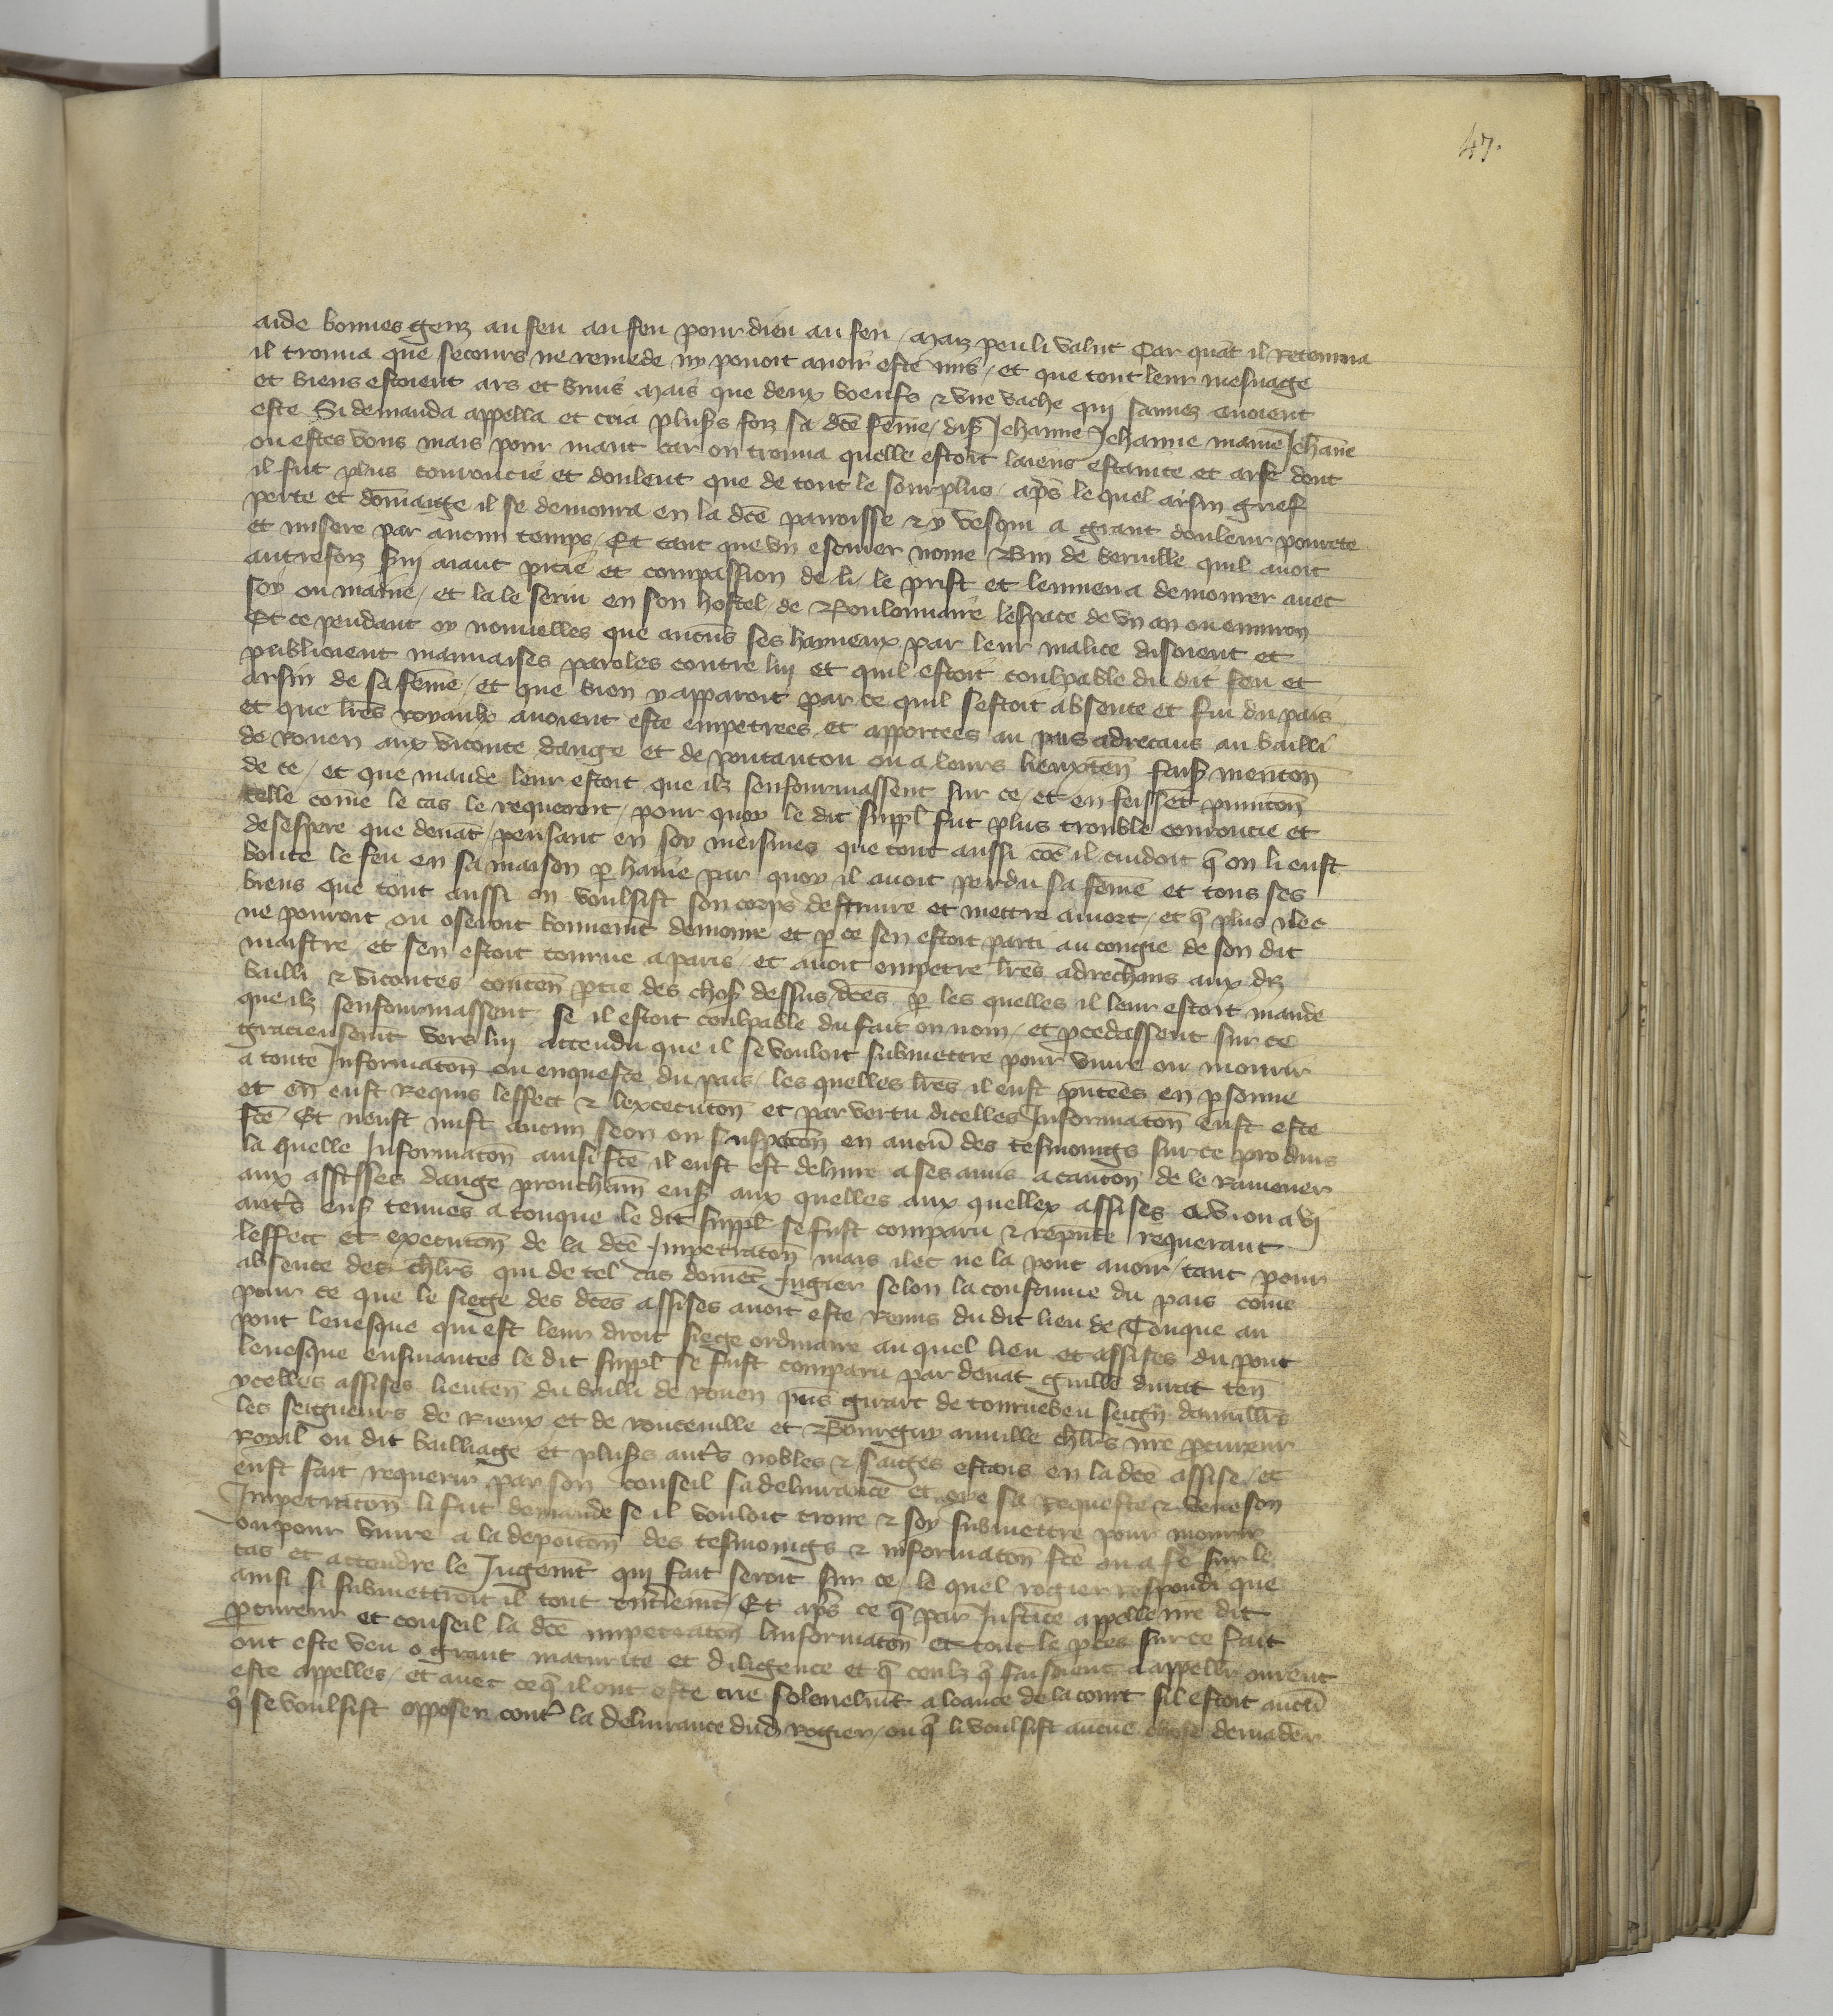 47.
aide bonnes genz au feu au feu pour dieu au feu / maiz peu li valut Car quāt il retourna
il trouua que secours ne remede ny pouoit auoir este mis / et que tout leur mesnage
et biens estoient ars et bruis mais que deux boeufs & vne vache qui sauuez auoient
este Si demanda appella et cria plus's foiz sa dc̄e fēme / dis̄ Jehanne Jehanne mamie Jehān̄e
ou estes vous mais pour niant car on trouua quelle estoit laiens estainte et arse dont
il fut plus courroucie et doulent que de tout le sourplus / ap̄s le quel arsin grief
perte et dom̄aige il se demoura en la dc̄e parroisse & y vesqui a grant douleur pourete
et misere par aucun temps / Et tant que vn escuier nōme de beruille quil auoit
autrefoiz serui aiant pitie et compassion de li / le prist et lenmena demourer auec
soy ou maine / et la le serui en son hostel de Roulonnaire lespace de vn an ou enuiron
Et ce pendant oy nouuelles que aucūs ses hayneux par leur malice disoient et
publioient mauuaises paroles contre lui et quil estoit coulpable du dit feu et
arsin de sa fēme / et que bien y apparoit par ce quil sestoit absente et fui du pais
et que lr̄es royaulx auoient este empetrees et apportees au pais adrecans au bailli
de Rouen aux viconte dauge et de pontautou ou a leurs lieuxten̄ fais̄ menc̄on
de ce / et que mande leur estoit que ilz senfourmassent sur ce / et en feissēt punic̄on
telle com̄e le cas le requeroit / pour quoy le dit suppl̄ fut plus trouble courroucie et
desespere que deuāt / pensant en soy meismes que tout aussi cōe il cuidoit q̄ on li eust
boute le feu en sa maison p haine par quoy il auoit perdu sa fēme et tous ses
biens que tout aussi on voulsist son corps destruire et mettre a mort / et q̄ plus ilec
ne pouroit ou oseroit bonnemēt demourer et p ce sen estoit parti au congie de son dit
maistre / et sen estoit tourne a paris / et auoit empetre lr̄es adrechans aux dz
bailli & vicontes / conten̄ ptie des chos̄ dessus dc̄es p les quelles il leur estoit mande
que ilz senfourmassent se il estoit coulpable du fait ou non / et pcedassent sur ce
gracieusemēt vers lui attendu que il se vouloit submettre pour viure ou mourir
a toute Informac̄on ou enqueste du pais / les quelles lr̄es il eust pn̄tees en psonne
et en eust Requis leffect & lexecuc̄on et par vertu dicelles Informac̄on eust este
fc̄e Et neust nuist aucun seon ou suspec̄on en aucū des tesmoings sur ce produis
la quelle Informac̄on ainsi fc̄e il eust est deliure a ses amis a cauc̄on de le Ramener
aux assises dauge prouchain̄ ens̄ aux quelles aux quelles assises a v ou a vj
ant̄s ens̄ tenues a touque le dit suppl̄ se fust comparu & repn̄te requerant
leffect et execuc̄on de la dc̄e Impetrac̄on mais ilec ne la pout auoir / tant pour
absente des chl̄rs qui de tel cas doiuēt Jugier selon la coustume du pais com̄e
pour ce que le siege des dc̄es assises auoit este remis du dit lieu de Touque au
pont leuesque qui est leur droit siege ordinaire au quel lieu et assises du pont
leuesque ensuiuantes le dit suppl̄ se fust comparu par deuāt guill̄e durāt ten̄
ycelles assises lieuten̄ du bailli de Rouen pn̄s girart de tournebeu seign̄ dauuill̄rs
les seigneurs de Rieux et de Ronceuille et annille chl̄rs nr̄e pcureur
Royal ou dit bailliage et plus's aut̄s nobles & saiges estans en la dc̄e assise / et
eust fait requerir par son conseil sa deliurance et oye sa requeste & veue son
Impetrac̄on li fut demande se il vouloit croire & soy submettre pour mourir
ou pour viure a la deposic̄on des tesmoings & informac̄on fc̄e ou a fe sur le
cas et attendre le Jugemt̄ qui fait seroit sur ce / le quel rogier respondi que
ainsi si submettroit il tout entieremt̄ / Et ap̄s ce q̄ par Justice appelle nr̄e dit
pcureur et conseil la dc̄e impetrac̄on linformac̄on et tout le pces sur ce fait
ont este veu o grant maturite et diligence et q̄ ceulx q̄ faisoient a appell̄r eurent
este appelles / et auec ce q̄ il ont este crie solenelmt̄ a loance de la court sil estoit aucū
q̄ se voulsist opposer cont̄ la deliurance dud̄ rogier / ou q̄ li voulsist aucūe chose demāder